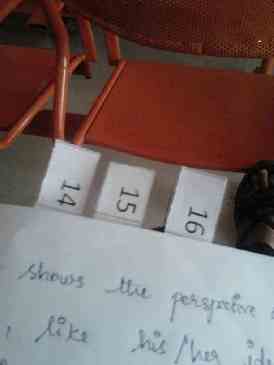 14
15
16
shows the perspective
, like his/her